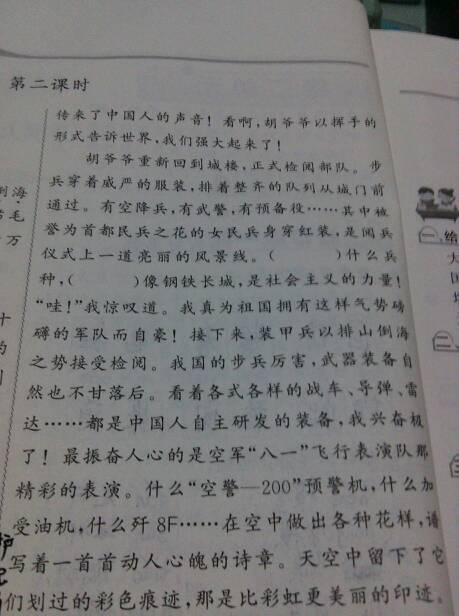 第二课时
传来了中国人的声音！看啊,胡爷爷以挥手的
形式告诉世界,我们强大起来了！
胡爷爷重新回到城楼,正式检阅部队。步
兵穿着威严的服装,排着整齐的队列从城门前
通过。有空降兵,有武警,有预备役……其中被
誉为首都民兵之花的女民兵身穿红装,是阅兵
仪式上一道亮丽的风景线。(　　　)什么兵
种,(　　　)像钢铁长城,是社会主义的力量！
“哇!”我惊叹道。我真为祖国拥有这样气势磅
礴的军队而自豪！接下来,装甲兵以排山倒海
之势接受检阅。我国的步兵厉害,武器装备自
然也不甘落后。看着各式各样的战车、导弹、雷
达……都是中国人自主研发的装备,我兴奋极
了！最振奋人心的是空军“八一”飞行表演队那
精彩的表演。什么“空警—200”预警机,什么加
受油机,什么歼8F……在空中做出各种花样,谱
写着一首首动人心魄的诗章。天空中留下了它
们划过的彩色痕迹,那是比彩虹更美丽的印迹。
倒海
毛
万
十
的
一、给
二、